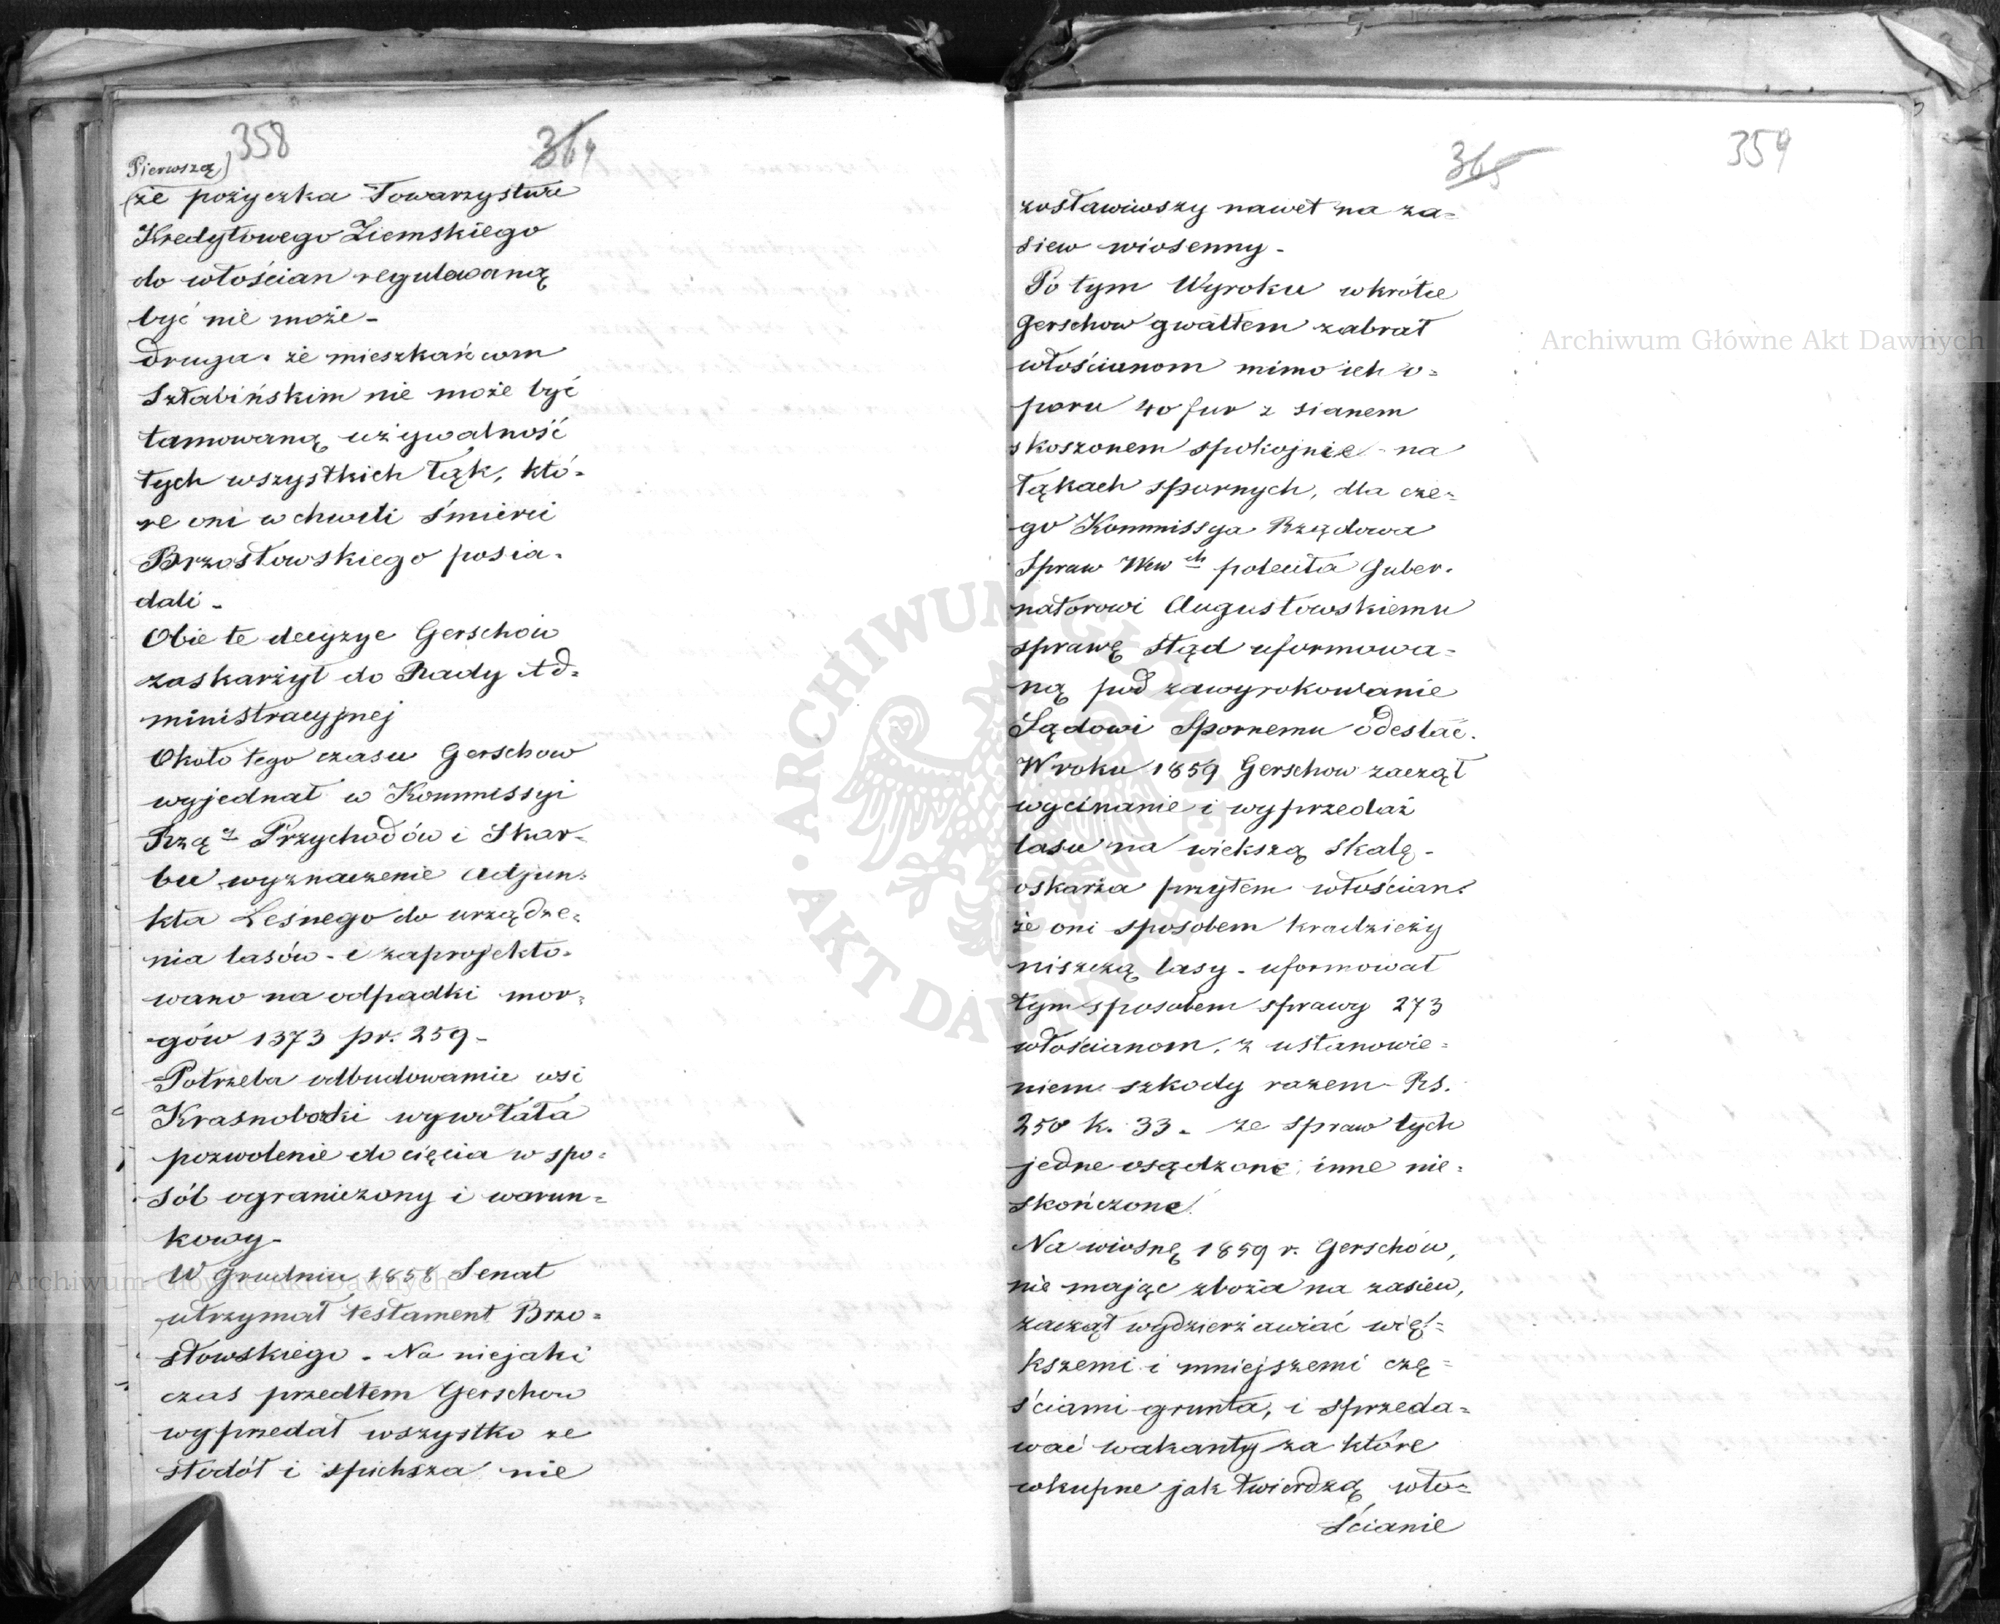 358
364
Pierwszą
że pożyczka Towarzystwe
Kredytowego Ziemskiego
do włościan regulowaną
być nie może -
druga. że mieszkańcom
Sztabińskim nie może być
tamowaną używalność
tych wszystkich łąk, któ=
re oni w chwili śmierci
Brzostowskiego posia=
dali -
Obie te decyzye Gerschow
zaskarżył do Rady Ad=
ministracyjnej
Około tego czasu Gerschow
wyjednał w Kommissyi
Rzą Przychodów i Skar=
bu wyznaczenie Adjun=
kta Leśnego do urządze=
nia lasów - i zaprojekto=
wano na odpadki mor=
gów 1373 pr. 259 -
Potrzeba odbudowania wsi
Krasnoborki wywołała
pozwolenie do cięcia w spo=
sób ograniczony i warun=
kowy -
W Grudniu 1858 Senat
utrzymał testament Brzo=
stowskiego - Na niejaki
czas przedtem Gerschow
wyprzedał wszystko ze
stodół i spichsza nie
365
359
zostawiwszy nawet na za=
siew wiosenny -
Po tym Wyroku wkrótce
Gerschow gwałtem zabrał
włościanom mimo ich o=
poru 40 fur z sianem
skoszonem spokojnie na
łąkach spornych, dla cze=
go Kommissya Rządowa
Spraw Wewch poleciła Guber=
natorowi Augustowskiemu
sprawę stąd uformowa=
ną pod zawyrokowanie
Sądowi Spornemu odesłać.
W roku 1859 Gerschow zaczął
wycinanie i wyprzedaż
lasu na większą skalę -
oskarża przytem włościan
że oni sposobem kradzieży
niszczą lasy - uformował
tym sposobem sprawy 273
włościanom, z ustanowie=
niem szkody razem Rs.
250 k. 33 - ze spraw tych
jedne osądzone, inne nie=
skończone.
Na wiosnę 1859 r. Gerschow,
nie mając zboża na zasiew,
zaczął wydzierżawiać wię=
kszemi i mniejszemi czę=
ściami grunta, i sprzeda=
wać wakanty za które
wkupne jak twierdzą wło=
ścianie
Archiwum Główne Akt Dawnych
Archiwum Główne Akt Dawnych
ARCHIWUM GŁÓWNE AKT DAWNYCH